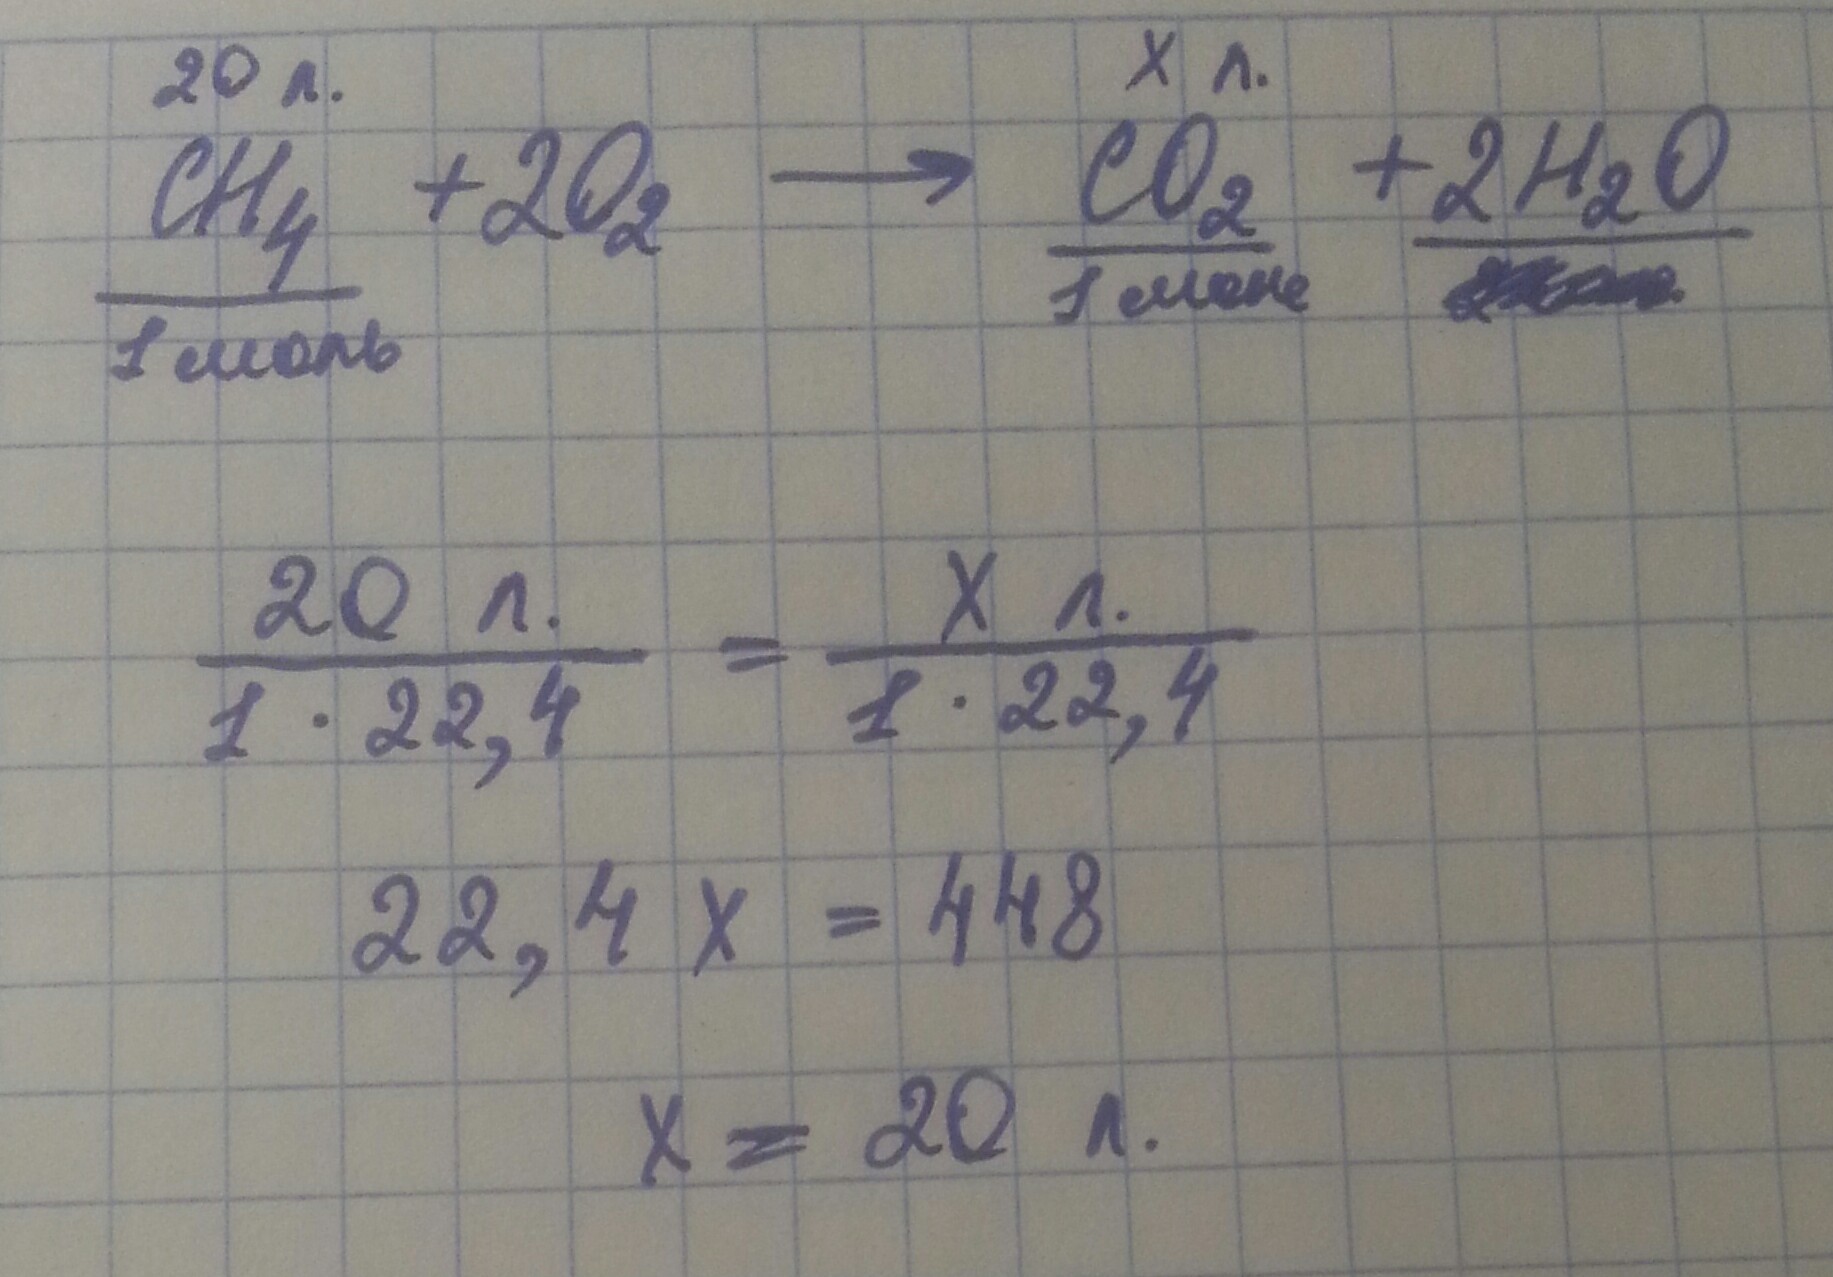 20 л. X л.
CH₄ + 2O₂ → CO₂ + 2H₂O
1 моль 1 моле
20 л. = X л.
1 · 22,4 1 · 22,4
22,4 X = 448
X = 20 л.